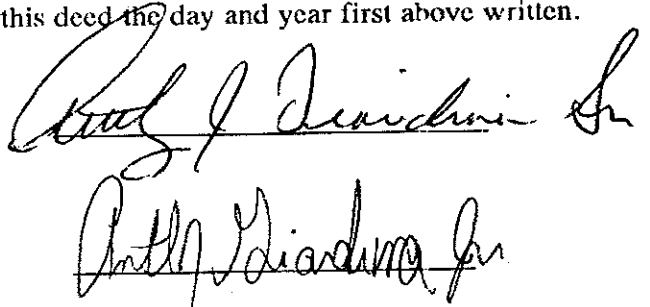 this deed the day and year first above written.
Anthony J Giardina Sr
Anthy Giardina Jr